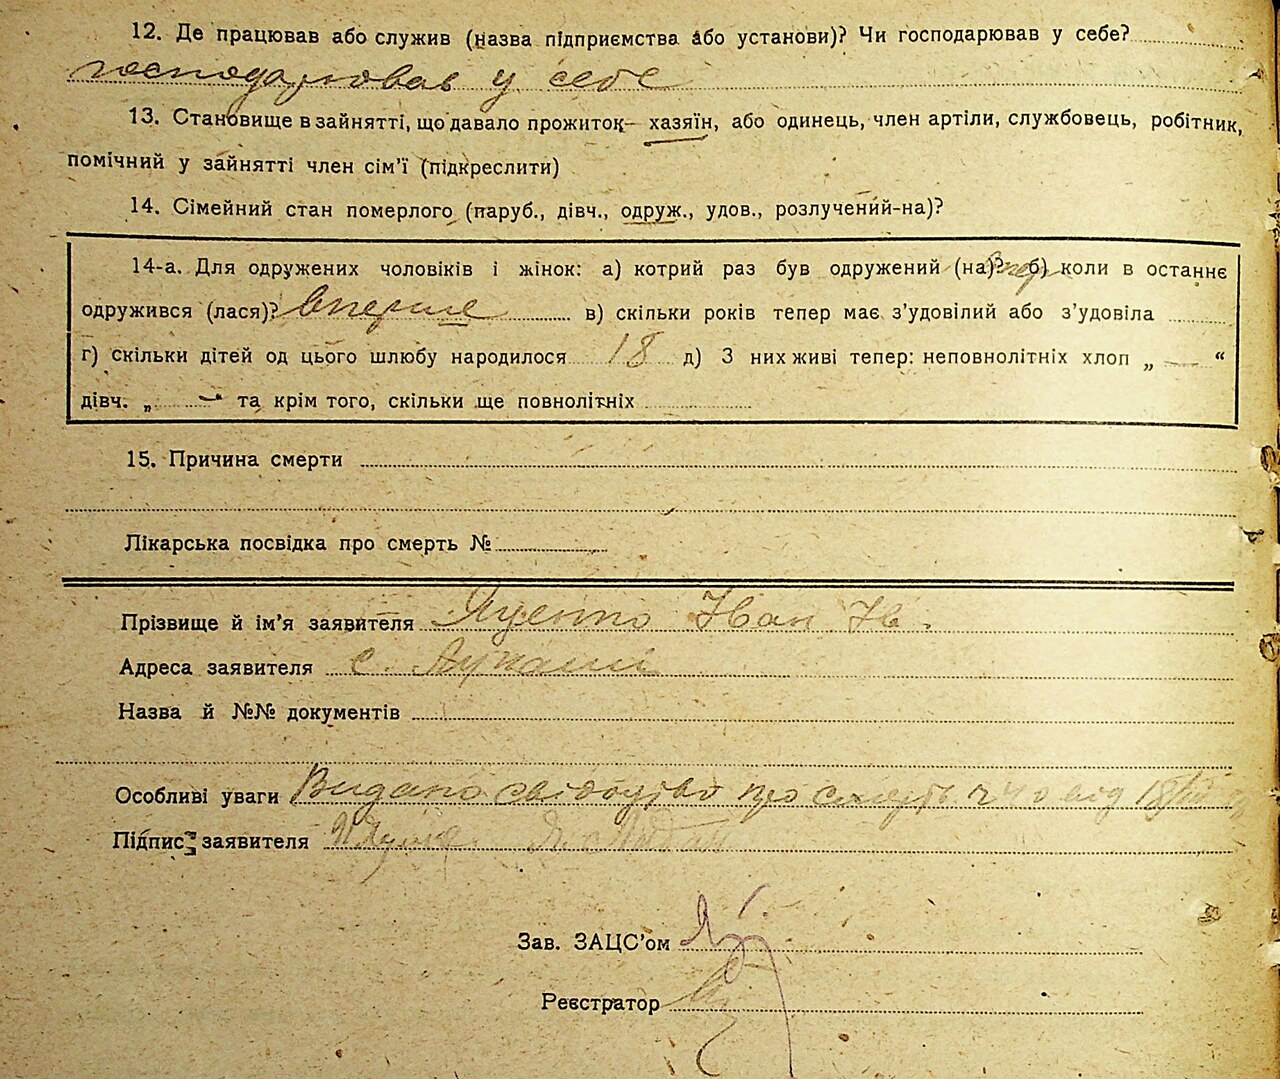 12. Де працював або служив (назва підприємства або установи)? Чи господарював у себе?
господарював у себе
13. Становище в зайнятті, що давало прожиток — хазяїн, або одинець, член артіли, службовець, робітник,
помічний у зайнятті член сім'ї (підкреслити)
14. Сімейний стан померлого (паруб., дівч., одруж., удов., розлучений-на)?
14-а. Для одружених чоловіків і жінок: а) котрий раз був одружений (на)? б) коли в останнє
одружився (лася)? вперше в) скільки років тепер має з'удовілий або з'удовіла
г) скільки дітей од цього шлюбу народилося 18 д) З них живі тепер: неповнолітніх хлоп „ — “
дівч. „ — “ та крім того, скільки ще повнолітніх
15. Причина смерти
Лікарська посвідка про смерть №
Прізвище й ім'я заявителя Яценко Іван Ів.
Адреса заявителя с. Лукаши
Назва й №№ документів
Особливі уваги Видано свідоцтво про смерть від 18
Підпис заявителя
Зав. ЗАЦС'ом
Реєстратор